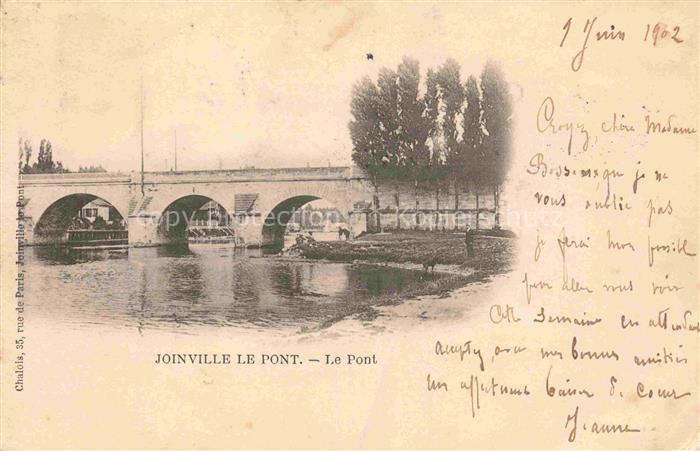 9 Juin 1902
Croyez, chère Madame
que je ne
vous oublie pas
je ferai mon possible
pour aller vous voir
Cette Semaine en attendant
acceptez, avec mes bonnes amitiés
Un affectueux baiser de coeur
Jeanne
JOINVILLE LE PONT. — Le Pont
Chalois, 35, rue de Paris, Joinville le Pont
copyright protection - Kopierschutz